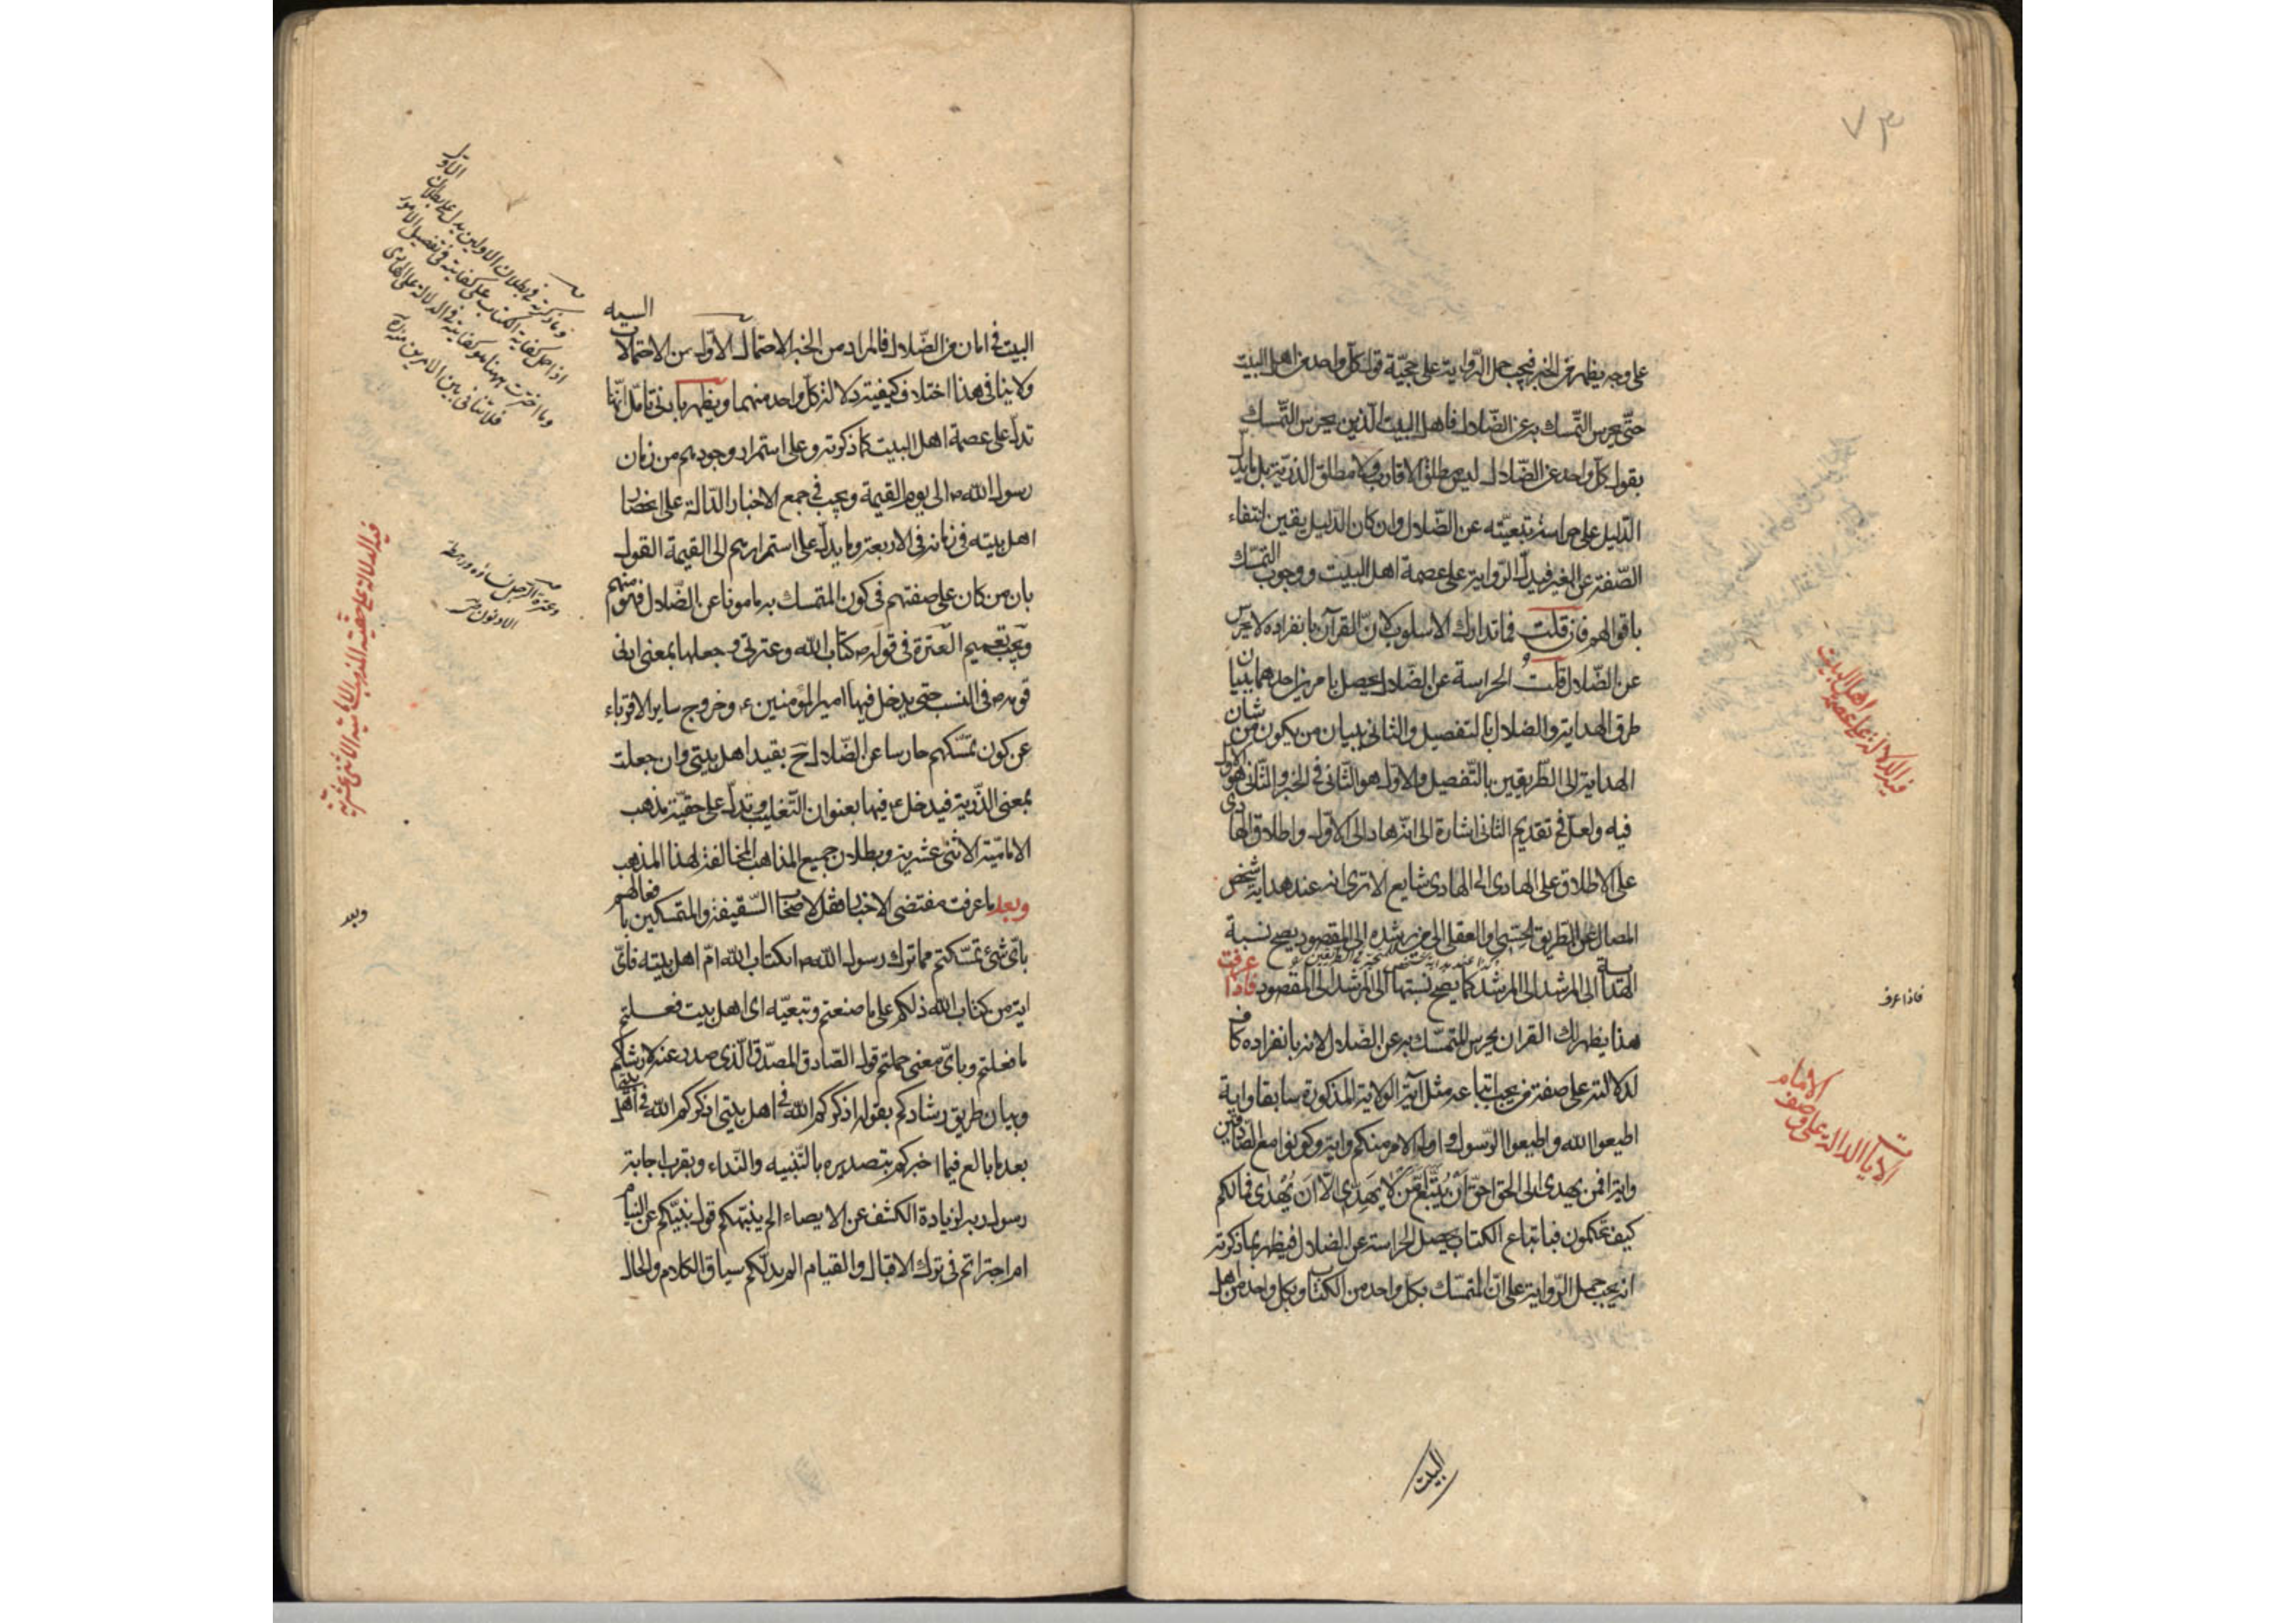 ٧٣
على وجه يظهر من الخبر فيجب حمل الرواية على حجّية قول كلّ واحد من اهل البيت
حتّى يحرس التمسّك به عن الضّلال فاهل البيت الّذين يحرس التّمسك
بقول كلّ واحد عن الضّلال ليس مطلق الاقارب ولا مطلق الذريّة بل ما يدلّ
الدّليل على حراسة تبعيّته عن الضّلال وان كان الدّليل يقين انتفاء
الصّفة عن الغير فيدلّ الرّواية على عصمة اهل البيت ووجوب التمسّك
باقوالهم فان قلت فما تدارك الاسلوب لانّ القرآن بانفراده لا يحرس
عن الضّلال قلت الحراسة عن الضّلال يحصل بامرين احدهما ببيان
طرق الهداية والضلال بالتفصيل والثانى ببيان من يكون من شان
الهداية الى الطّريقين بالتّفصيل والاوّل هو الثّانى فى الخبر والثّانى هو الاول
فيه ولعلّ فى تقديم الثانى اشارة الى انّه هاد الى الاوّل واطلاق الهادى
على الاطلاق على الهادى الى الهادى شايع الا ترى انه عند هداية شخص
الضالّ عن الطّريق الحسّى او العقلى الى من يرشده الى المقصود يصح نسبة
الهداية الى المرشد الى المرشد كما يصحّ نسبتها الى المرشد الى المقصود فاذا عرفت
هذا يظهر لك القران يحرس المتمسّك به عن الضّلال لانه بانفراده كاف
لدلالته على صفة من يجب اتباعه مثل آية الولاية المذكورة سابقا واية
اطيعوا الله واطيعوا الرّسول واولى الامر منكم واية وكونوا مع الصّادقين
واية افمن يهدى الى الحق احقّ اَنْ يُتَّبَعَ اَمَّنْ لا يَهِدِّى اِلّا اَنْ يُهْدى فمالكم
كيف تحكمون فباتباع الكتاب يحصل الحراسة عن الضلال فيظهر بما ذكرته
انه يجب حمل الرّواية على انّ المتمسّك بكلّ واحد من الكتاب وبكلّ واحد من اهل
البيت
فيه الدلالة على عصمة اهل البيت
فاذا عرف
الايات الدالة على وصف الامام
البيت فى امان من الضّلال فالمراد من الخبر الاحتمال الاوّل من الاحتمالات
ولا ينافى هذا اختلاف كيفية دلالة كلّ واحد منهما ويظهر بادنى تامّل انّها
تدلّ على عصمة اهل البيت كما ذكرته وعلى استمرار وجودهم من زمان
رسول الله ص الى يوم القيمة ويجب فى جمع الاخبار الدّالة على انحصار
اهل بيته فى زمانه فى الاربعة وما يدلّ على استمرارهم الى القيمة القول
بان من كان على صفتهم فى كون المتمسك به مامونا عن الضّلال فهو منهم
ويجب تعميم العترة فى قوله ص كتاب الله وعترتى وجعلها بمعنى ادنى
قومه ص فى النسب حتى يدخل فيها امير المؤمنين ع وخروج ساير الاقرباء
عن كون تمسّكهم حارسا عن الضّلال ح بقيد اهل بيتى وان جعلت
بمعنى الذّرية فيدخل ع فيها بعنوان التّغليب وتدلّ على حقيّة مذهب
الاماميّة الاثنى عشرية وبطلان جميع المذاهب المخالفة لهذا المذهب
وبعد ما عرفت مقتضى الاخبار فقل لاصحاب السّقيفة والمتمسكين بافعالهم
باىّ شئ تمسّكتم مما ترك رسول الله ص اكتاب الله امّ اهل بيته فاىّ
اية من كتاب الله دلكم على ما صنعتم وتبعيّة اى اهل بيت فعلتم
ما فعلتم وباىّ معنى حملتم قول الصّادق المصدّق الّذى صدر عنه لارشادكم
وبيان طريق رشادكم بقوله اذكركم الله فى اهل بيتى اذكركم الله فى اهل بيتى
بعد ما بالغ فيما اخبركم بتصديره بالتّنبيه والنّداء وبقرب اجابة
رسول ربه لزيادة الكشف عن الايصاء الم ينبّهكم قول نبيّكم عن النيام
ام اجتراتم فى ترك الاقبال والقيام الم يدلّكم سياق الكلام والحال
وما ذكرته فى بطلان الاولين يدل على بطلان
فلا تنافى بين الامرين منه
فيه الدلالة على حقية المذهب الامامية الاثنى عشرية
وعترة الرجل نساؤه ورهطه
الادنون
وبعد